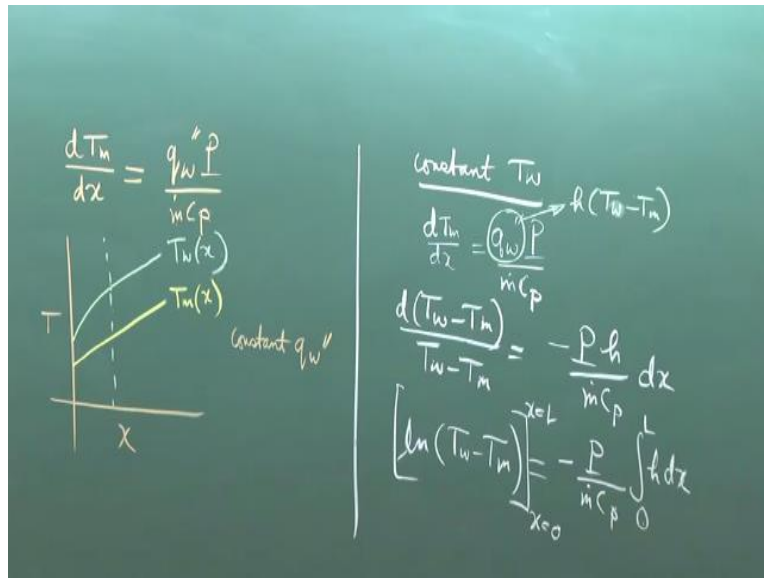 dTm/dx = qw"P/ṁCp
Tw(x)
Tm(x)
T
constant qw"
x
constant Tw
dTm/dx = qw"P/ṁCp → h(Tw-Tm)
d(Tw-Tm)/Tw-Tm = -Ph/ṁCp dx
[ln(Tw-Tm)]x=0 x=L = -P/ṁCp ∫0 L hdx